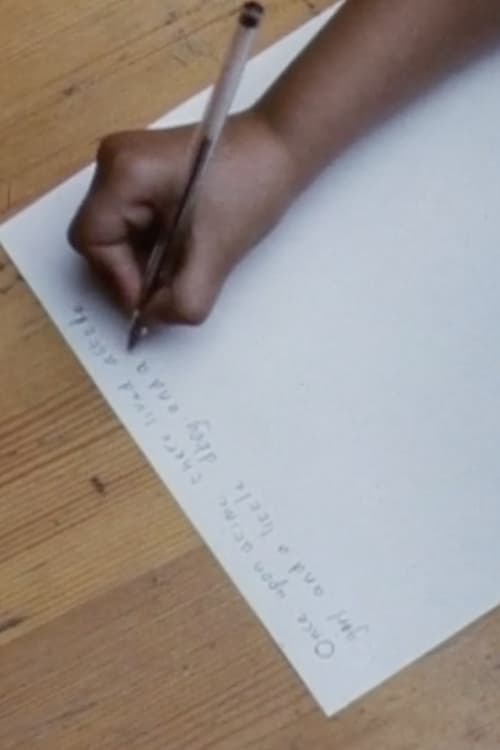 Once upon atime there lived alitele
gary and a litele dbog anda